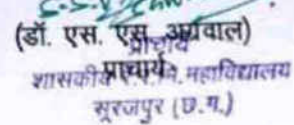 (डॉ. एस. एस. अग्रवाल)
प्राचार्य
प्राचार्य
शासकीय महाविद्यालय
सूरजपुर (छ.ग.)